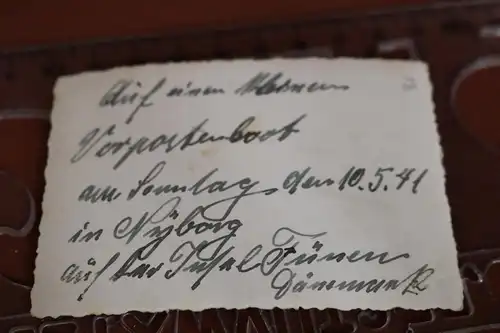 Auf einen kleinen
Vorpostenboot
am Sonntag, den 10.5.41
in Nyborg
auf der Insel Fünen
Dänemark